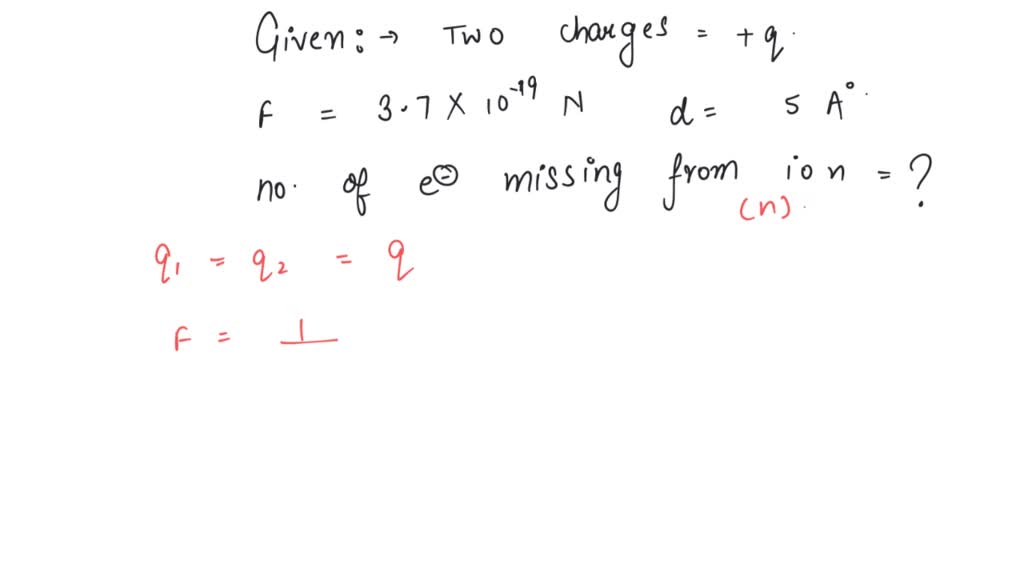 Given:→ Two charges = +q.
F = 3.7 × 10⁻¹⁹ N d = 5 A°.
no. of e⊖ missing from ion = ?
(n).
q₁ = q₂ = q
F = 1